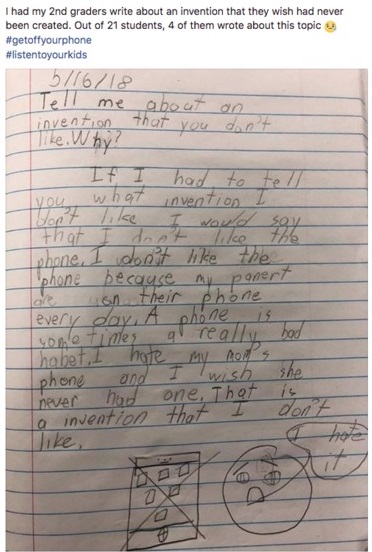 I had my 2nd graders write about an invention that they wish had never
been created. Out of 21 students, 4 of them wrote about this topic 😥
#getoffyourphone
#listentoyourkids
5/16/18
Tell me about an
invention that you don't
like. Why?
If I had to tell
you what invention I
don't like I would say
that I don't like the
phone. I don't like the
phone because my panert
are on their phone
every day. A phone is
sometimes a really bad
habet. I hate my mom's
phone and I wish she
never had one. That is
a invention that I don't
like.
I hate
it